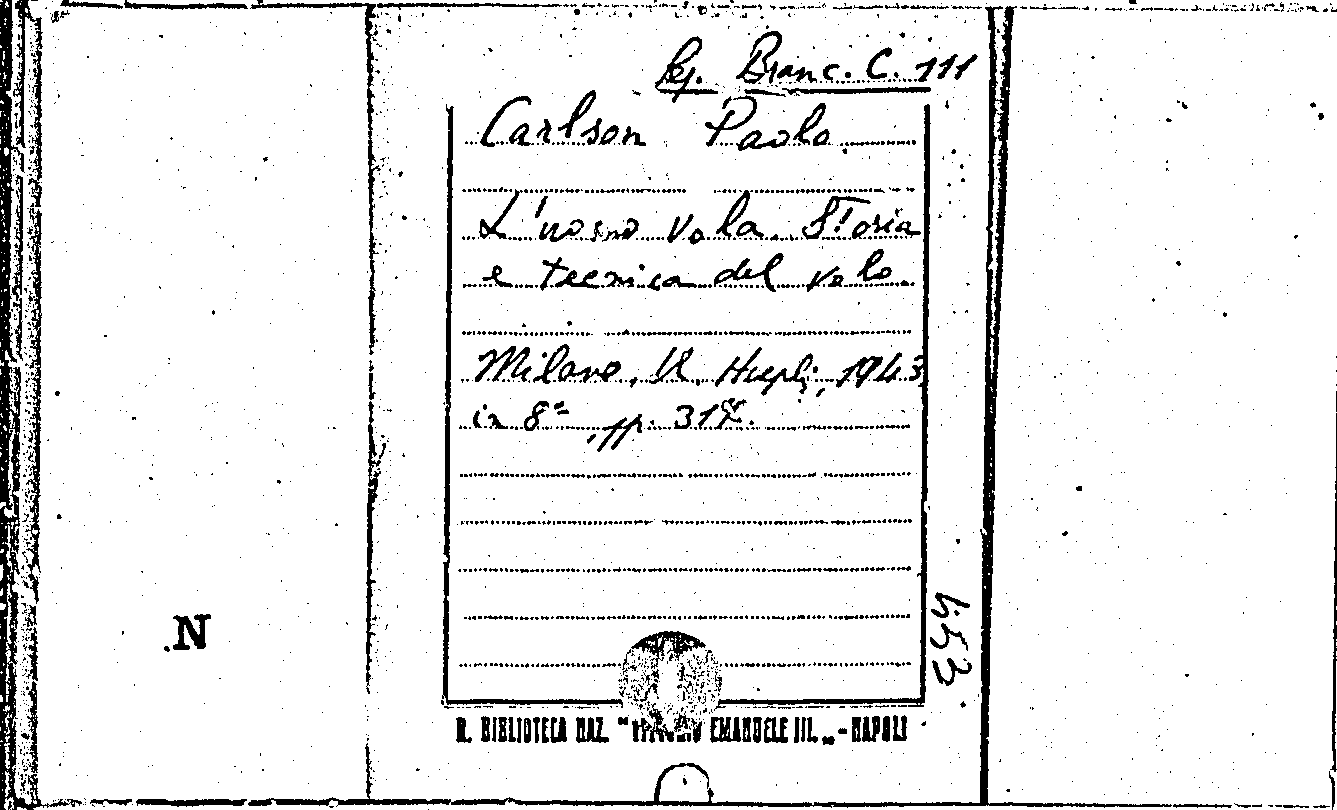 Leg. Branc. C. 111
Carlson Paolo.
L'uomo vola. Storia
e tecnica del volo.
Milano, U. Hoepli, 1943
in 8º, pp. 317.
453
N
R. BIBLIOTECA NAZ. "VITTORIO EMANUELE III." - NAPOLI